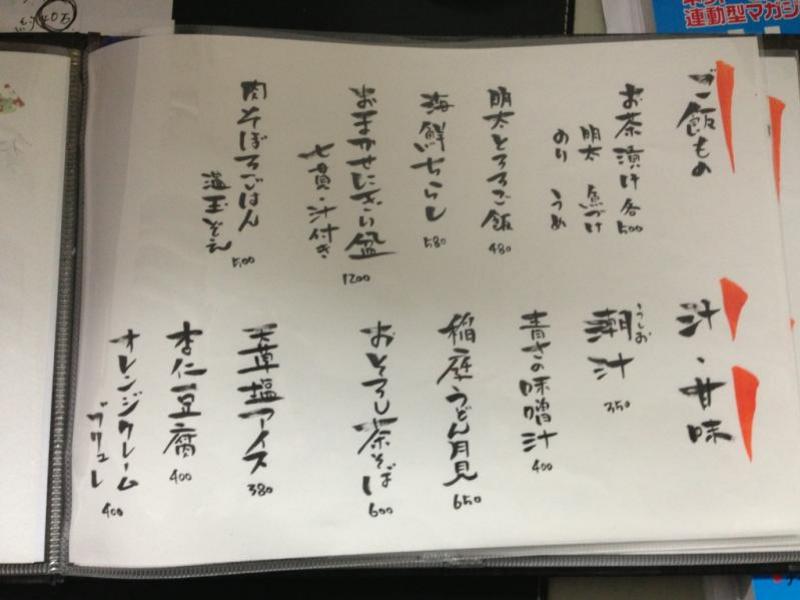 ご飯もの
お茶漬け各500
明太 魚づけ
のり うめ
明太とろろご飯 480
海鮮ちらし 580
おまかせにぎり盆 1200
七貫・汁付き
肉そぼろごはん 500
温玉ぞえ
汁・甘味
潮汁 350
うしお
青さの味噌汁 400
稲庭うどん月見 650
おろし茶そば 600
天草塩アイス 380
杏仁豆腐 400
オレンジクレーム
ブリュレ 400
連動型マガジ